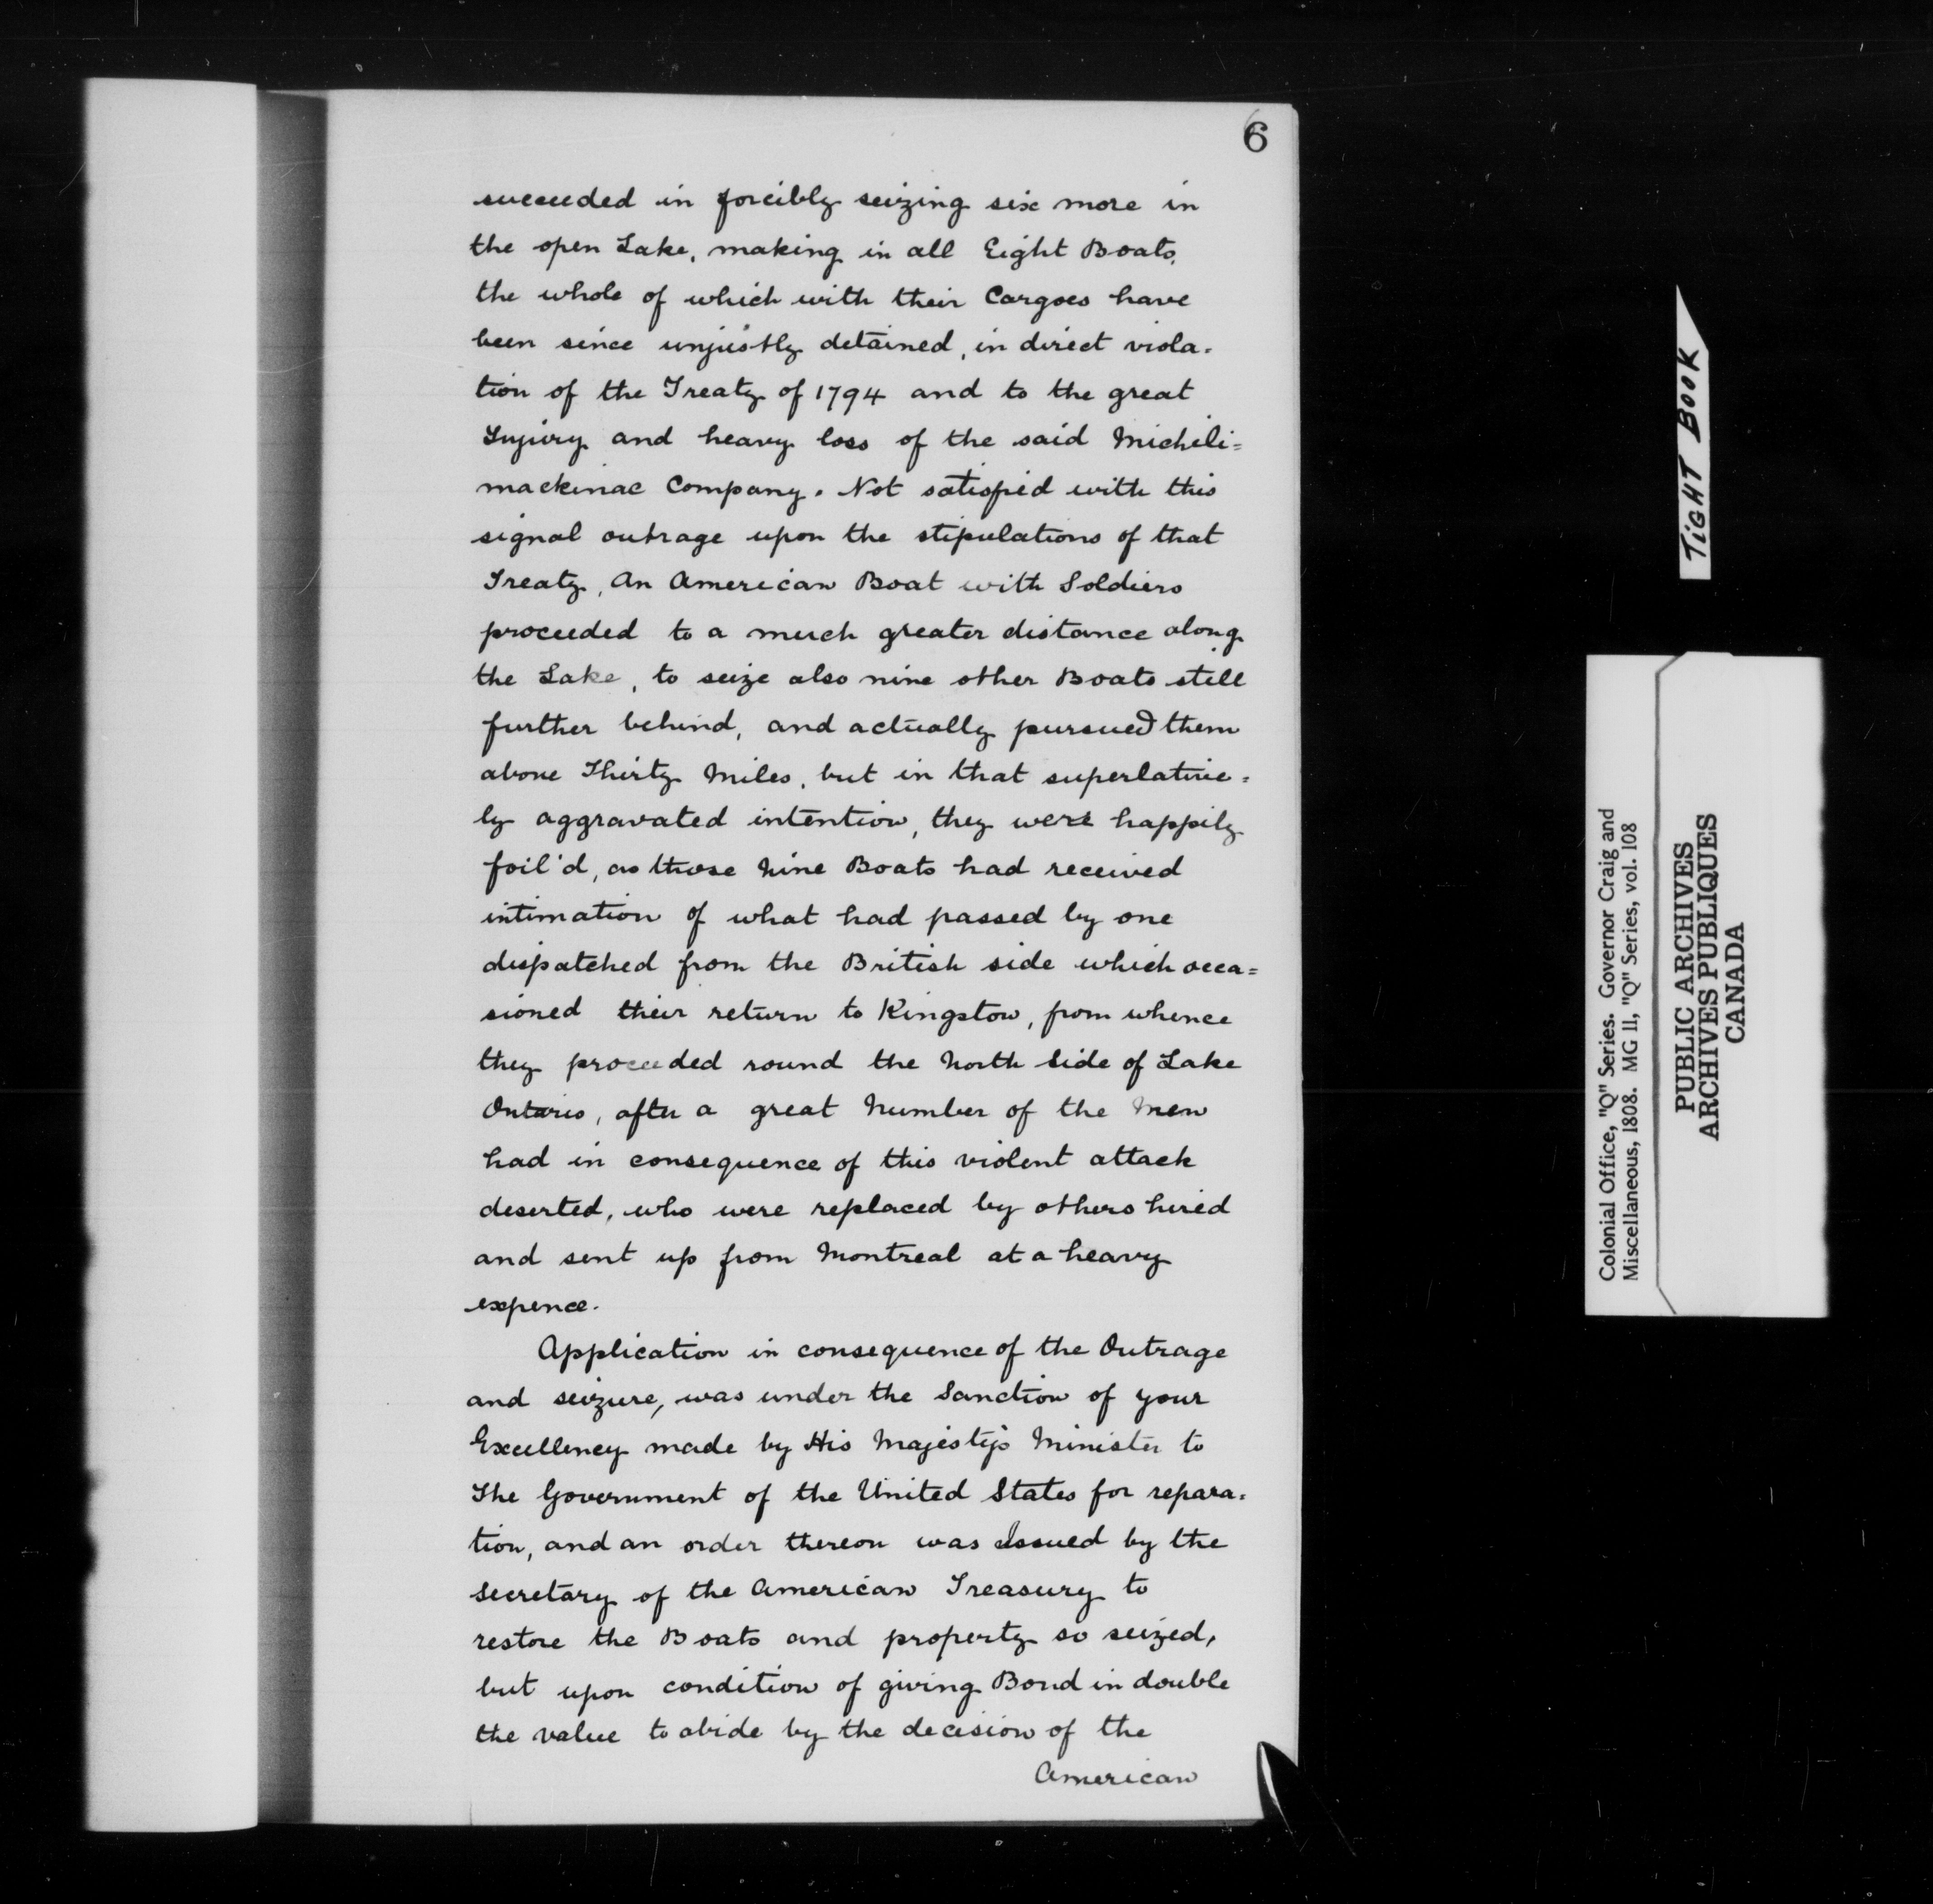 6
succeeded in forcibly seizing six more in
the open Lake, making in all Eight Boats,
the whole of which with their Cargoes have
been since unjustly detained, in direct viola-
tion of the Treaty of 1794 and to the great
Injury and heavy loss of the said Micheli=
mackinac Company. Not satisfied with this
signal outrage upon the stipulations of that
Treaty, An American Boat with Soldiers
proceeded to a much greater distance along
the Lake, to seize also nine other Boats still
further behind, and actually pursued them
above Thirty Miles, but in that superlative=
ly aggravated intention, they were happily
foil'd, as those Nine Boats had received
intimation of what had passed by one
dispatched from the British side which occa=
sioned their return to Kingston, from whence
they proceeded round the North Side of Lake
Ontario, after a great Number of the Men
had in consequence of this violent attack
deserted, who were replaced by others hired
and sent up from Montreal at a heavy
expence.
Application in consequence of the Outrage
and seizure, was under the Sanction of your
Excellency made by His Majesty's Minister to
The Government of the United States for repara-
tion, and an order thereon was Issued by the
Secretary of the American Treasury to
restore the Boats and property so seized,
but upon condition of giving Bond in double
the value to abide by the decision of the
American
TiGHT BOOK
Colonial Office, "Q" Series. Governor Craig and
Miscellaneous, 1808. MG 11, "Q" Series, vol. 108
PUBLIC ARCHIVES
ARCHIVES PUBLIQUES
CANADA